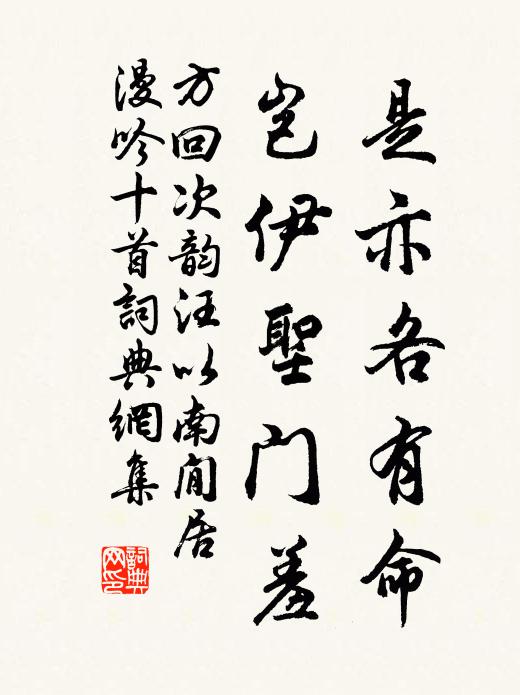 是亦各有命
岂伊聖门羞
方回次韵汪以南闲居
漫吟十首詞典網集
詞典
网印